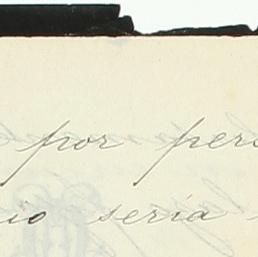 por pers
io seria